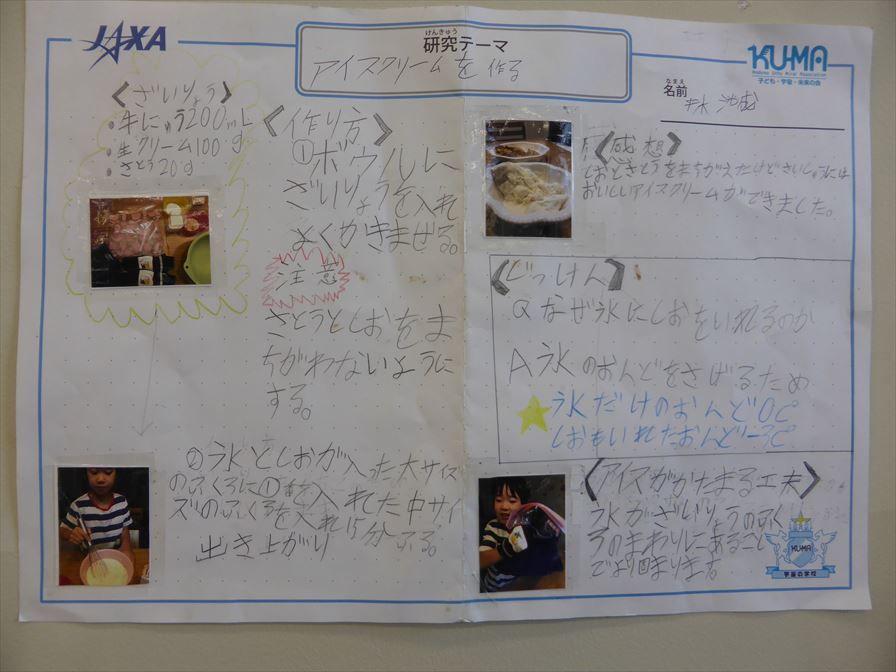 JAXA
けんきゅう
研究テーマ
アイスクリームを作る
KU-MA
Kodomo Uchu Mirai Association
子ども・宇宙・未来の会
なまえ
名前
《ざいりょう》
・牛にゅう200mL
・生クリーム100g
・さとう20g
《作り方》
①ボウルに
ざいりょうを入れ
よくかきまぜる。
注意
さとうとしおをま
ちがわないように
する。
②氷としおが入った大サイズ
のふくろに①を入れた中サイ
ズのふくろを入れ15分ふる。
出き上がり
《感想》
しおとさとうをまちがえたけどさいしゅうてきには
おいしいアイスクリームができました。
《じっけん》
Qなぜ氷にしおをいれるのか
A氷のおんどをさげるため
氷だけのおんど0℃
しおもいれたおんど-3℃
《アイスがかたまる工夫》
氷がざいりょうのふく
ろのまわりにあること
でより固まります。
KU-MA
宇宙の学校